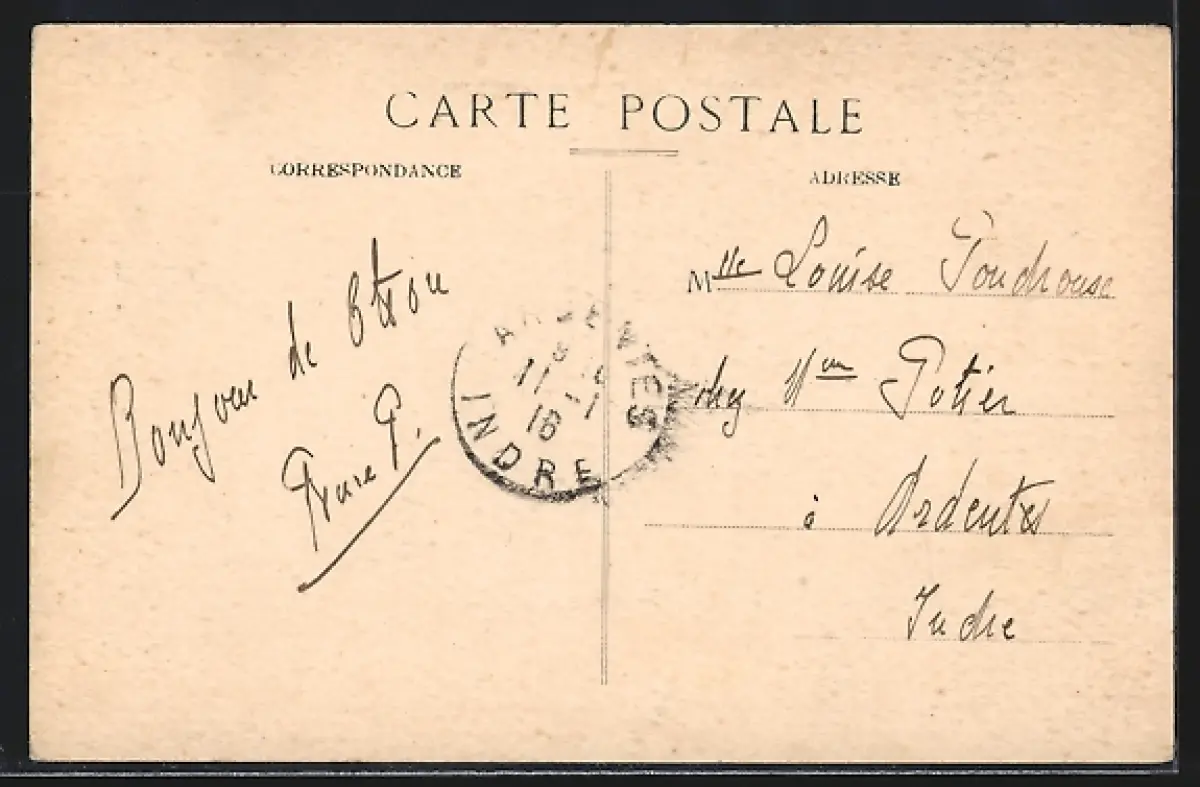 CARTE POSTALE
CORRESPONDANCE
ADRESSE
Bonjour de
P.
ARDENTES
11 - 1
16
INDRE
Mlle Louise
chez Mme Potier
à Ardentes
Indre